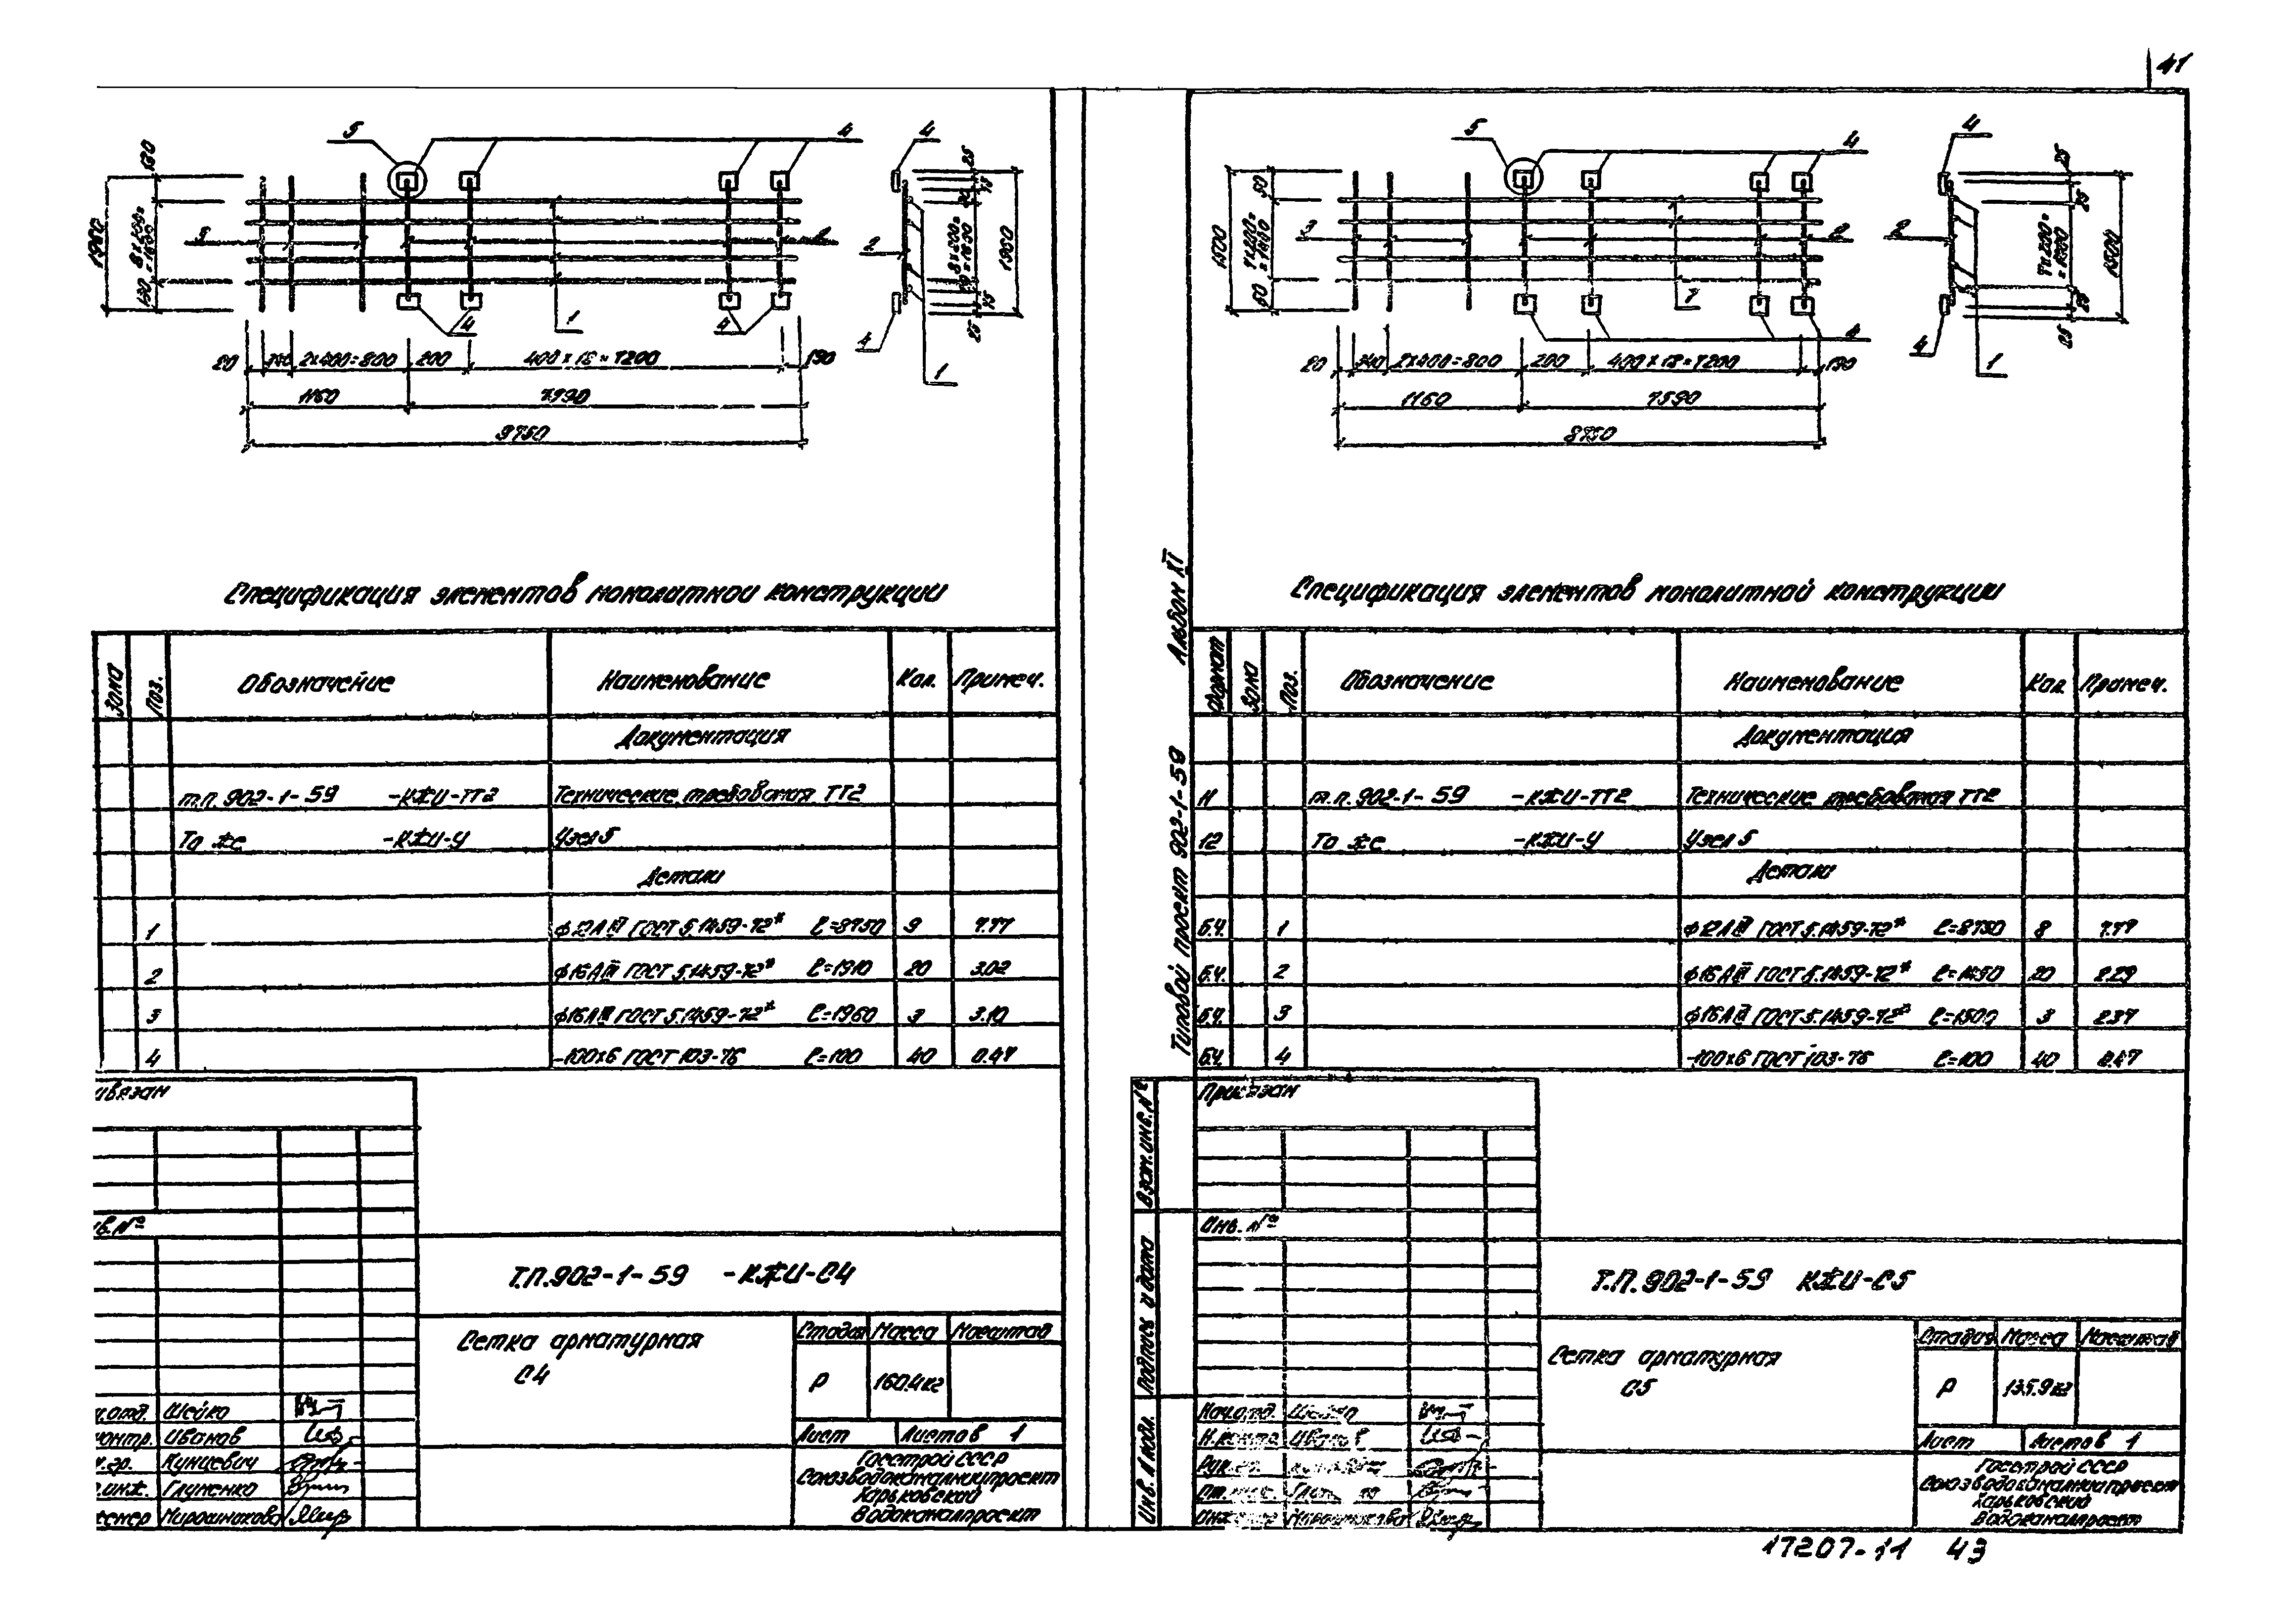 41
5
4
4
130
1960
8×200=
=1600
130
3
2
4
4
1
80
2×400=800
200
400×18=7200
190
1160
9750
2
4
1
25
1960
25
5
4
4
50
1500
7×200=
=1400
50
3
2
1
4
80
340
2×400=800
200
400×18=7200
190
1160
7590
8750
2
4
1
25
25
1500
25
25
Спецификация элементов монолитной конструкции
Зона
Поз.
Обозначение
Наименование
Кол.
Примеч.
Документация
т.п. 902-1-59 -КЖИ-ТТ2 Технические требования ТТ2
То же -КЖИ-У Узел 5
Детали
1 ф12АIII ГОСТ 5.1459-72* ℓ=8750 9 7.77
2 ф16АIII ГОСТ 5.1459-72* ℓ=1910 20 3.02
3 ф16АIII ГОСТ 5.1459-72* ℓ=1960 3 3.10
4 -100×6 ГОСТ 103-76 ℓ=100 40 0.47
ивязан
в. №
Т.П. 902-1-59 -КЖИ-С4
Сетка арматурная
С4
Стадия Масса Масштаб
Р 160.4кг
Лист Листов 1
ч.отд. Шейко
контр. Иванов
к.гр. Кунцевич
т.инж. Глуменко
женер
Госстрой СССР
Союзводоканалниипроект
Харьковский
Водоканалпроект
Альбом XI
Типовой проект 902-1-59
Спецификация элементов монолитной конструкции
Формат
Зона
Поз.
Обозначение
Наименование
Кол.
Примеч.
Документация
11 т.п. 902-1-59 -КЖИ-ТТ2 Технические требования ТТ2
12 То же -КЖИ-У Узел 5
Детали
б.ч. 1 ф12АIII ГОСТ 5.1459-72* ℓ=8750 8 7.77
б.ч. 2 ф16АIII ГОСТ 5.1459-72* ℓ=1450 20 2.29
б.ч. 3 ф16АIII ГОСТ 5.1459-72* ℓ=1500 3 2.37
б.ч. 4 -100×6 ГОСТ 103-76 ℓ=100 40 0.47
Привязан
Инв. №
Взам. инв. №
Подпись и дата
Инв. № подл.
Т.П. 902-1-59 КЖИ-С5
Сетка арматурная
С5
Стадия Масса Масштаб
Р 135.9кг
Лист Листов 1
Нач.отд. Шейко
Н.контр. Иванов
Госстрой СССР
Союзводоканалниипроект
Харьковский
Водоканалпроект
17207-11 43